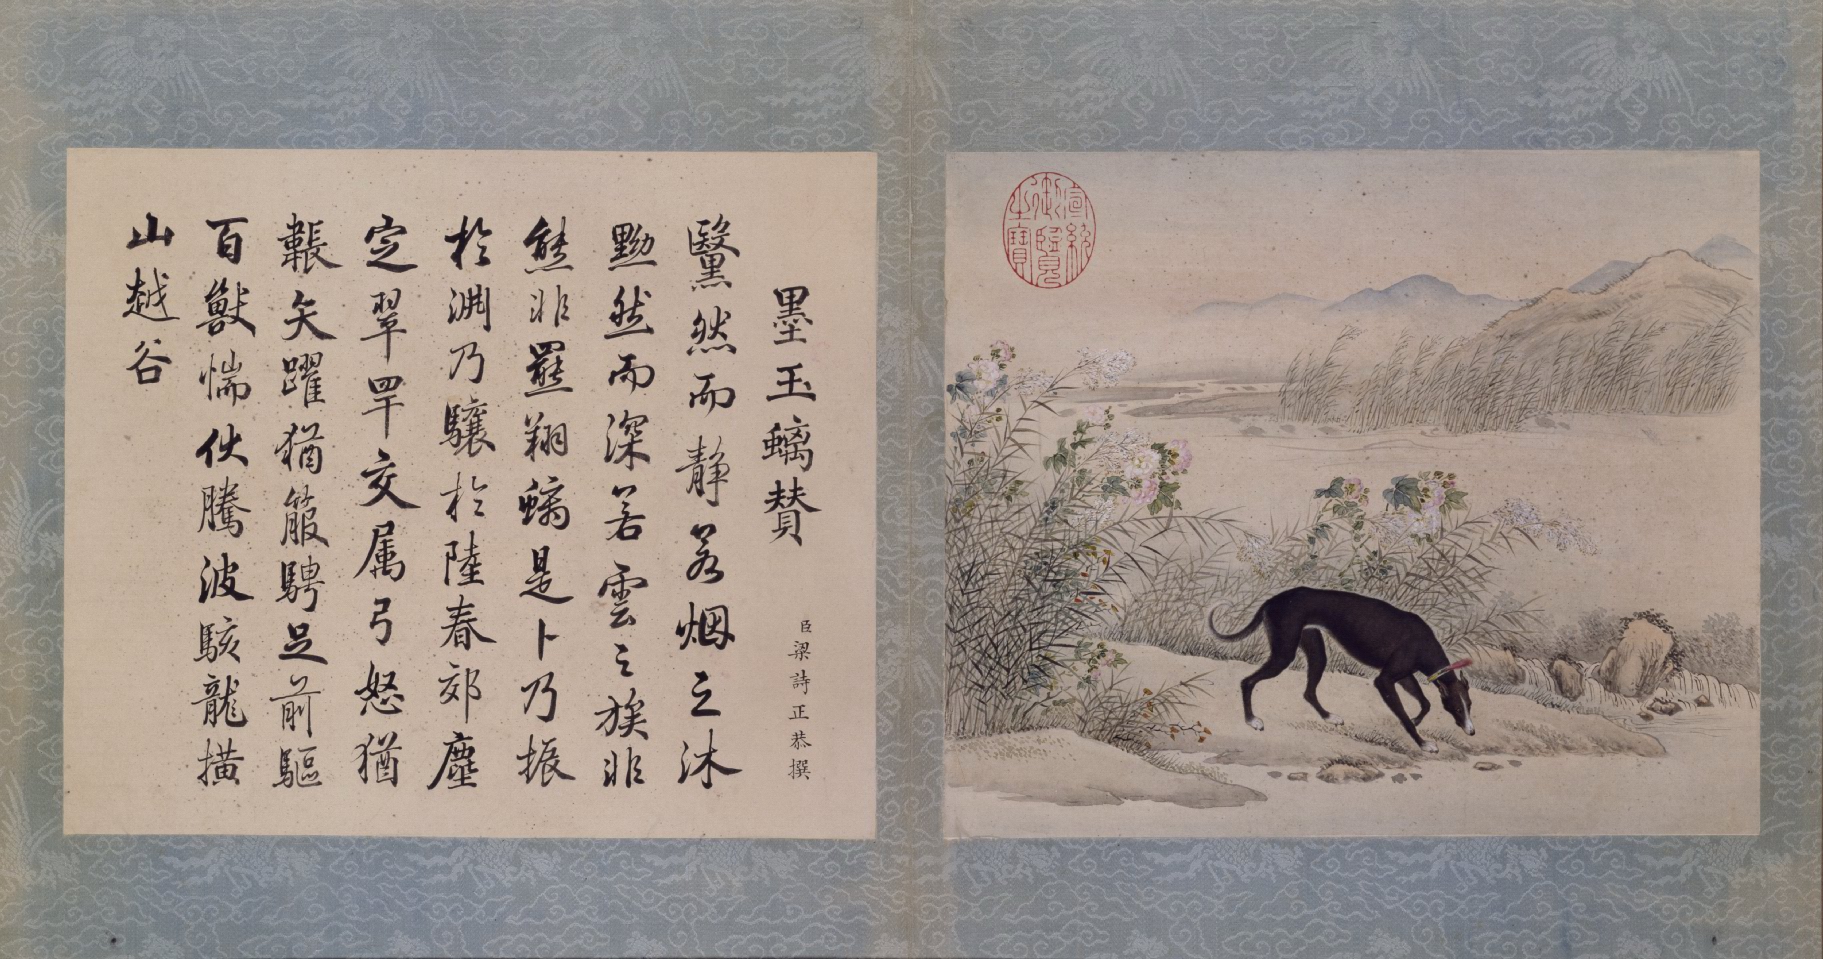 墨玉螭賛
臣梁詩正恭撰
黳然而静若烟之沐
黝然而深若雲之族非
熊非羆翔螭是卜乃振
於淵乃驤於陸春郊塵
定翠罕交属弓怒猶
韔矢躍猶箙騁足前驅
百獸惴伏騰波駭龍橫
山越谷
宣統御覽之寶